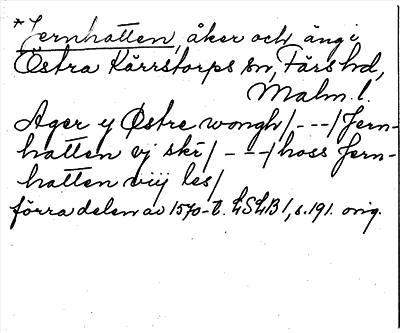 *Jernhatten, åker och äng i
Östra Kärrstorps sn, Färs hd,
Malm. l.
Ager y Østre wongh/---/Jern-
hatten vj skr/---/hoss Jern-
hatten viij les/
förra delen av 1570-t. LSLB 1, s. 191. orig.